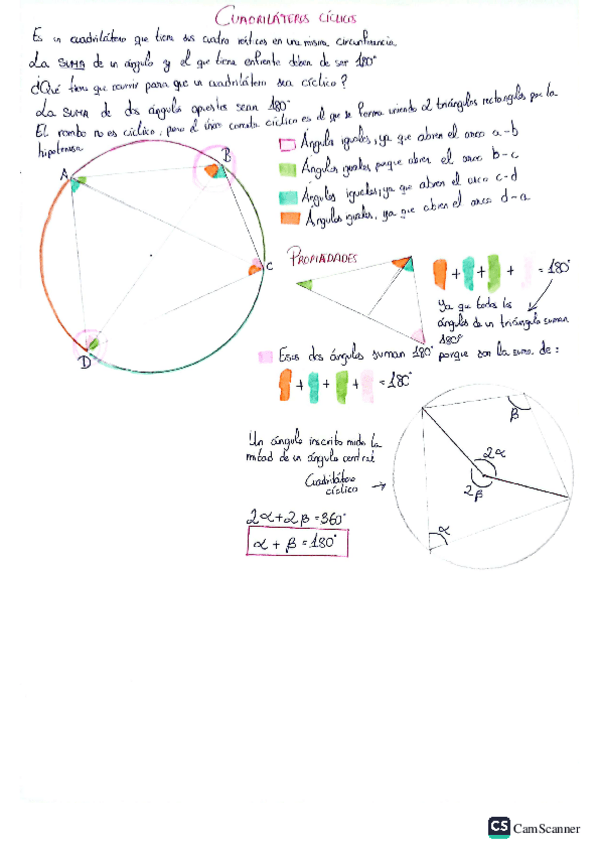 CUADRILÁTEROS CÍCLICOS
Es un cuadrilátero que tiene sus cuatro vértices en una misma circunferencia.
La SUMA de un ángulo y el que tiene enfrente deben de ser 180°
¿Qué tiene que ocurrir para que un cuadrilátero sea cíclico?
La SUMA de dos ángulos opuestos sean 180°
El rombo no es cíclico, pero el único cometa cíclico es el que se forma uniendo 2 triángulos rectángulos por la
hipotenusa
Ángulos iguales, ya que abren el arco a-b
Ángulos iguales, porque abren el arco b-c
Ángulos iguales, ya que abren el arco c-d
Ángulos iguales, ya que abren el arco d-a
A
B
C
D
PROPIADADES
+ + + = 180°
Ya que todos los
ángulos de un triángulo suman
180°
Esos dos ángulos suman 180° porque son la suma de:
+ + + = 180°
Un ángulo inscrito mide la
mitad de un ángulo central
Cuadrilátero
cíclico →
2α+2β=360°
α + β = 180°
β
2α
2β
α
CS CamScanner